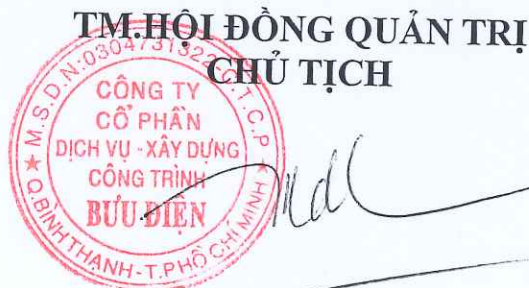 TM.HỘI ĐỒNG QUẢN TRỊ
CHỦ TỊCH
M.S.D.N:0304731322-C.T.C.P
CÔNG TY
CỔ PHẦN
DỊCH VỤ - XÂY DỰNG
CÔNG TRÌNH
BƯU ĐIỆN
★ Q.BÌNH THẠNH-T.PHỐ CHÍ MINH ★